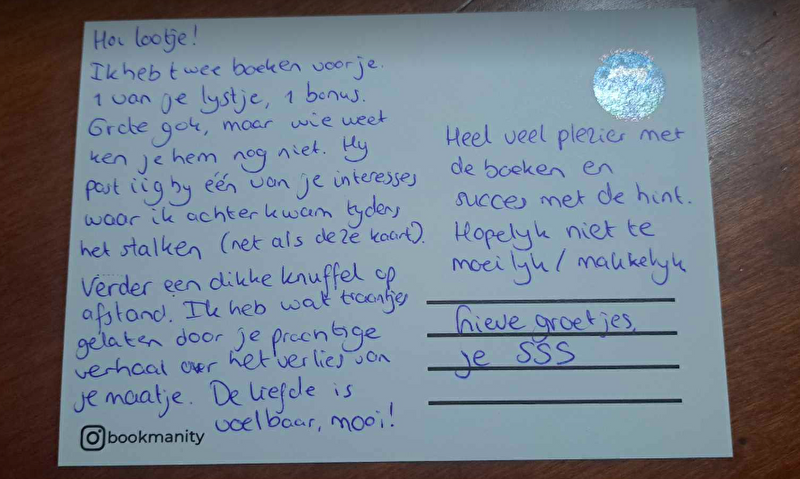 Hoi lootje!
Ik heb twee boeken voor je.
1 van je lijstje, 1 bonus.
Grote gok, maar wie weet
ken je hem nog niet. Hij
past iig bij één van je interesses
waar ik achter kwam tijdens
het stalken (net als deze kaart).
Verder een dikke knuffel op
afstand. Ik heb wat traantjes
gelaten door je prachtige
verhaal over het verlies van
je maatje. De liefde is
voelbaar, mooi!
bookmanity
Heel veel plezier met
de boeken en
succes met de hint.
Hopelijk niet te
moeilijk / makkelijk
Lieve groetjes,
je SSS